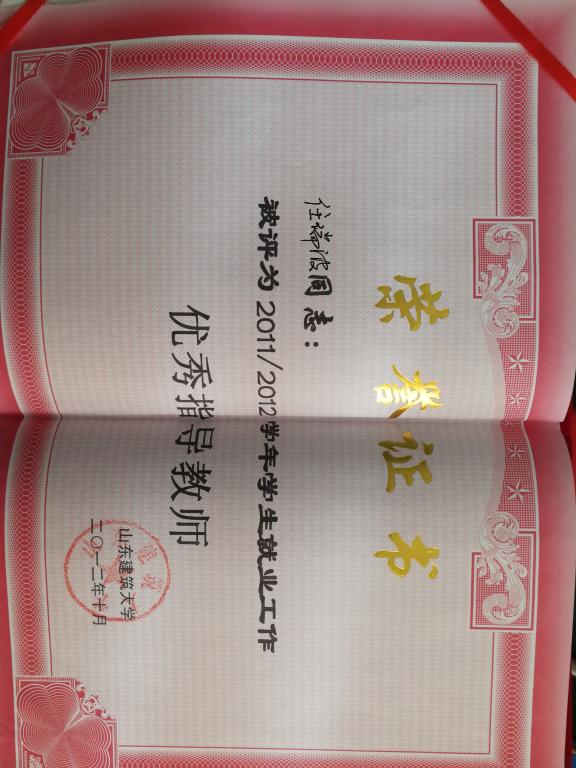 荣誉证书
任瑞波同志：
被评为2011/2012学年学生就业工作
优秀指导教师
山东建筑大学
二〇一二年十月